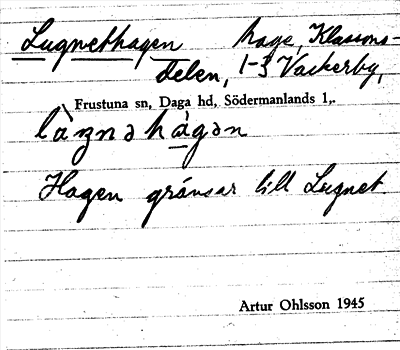 Lugnethagen hage, Klassons-
delen, 1-3 Vackerby,
Frustuna sn, Daga hd, Södermanlands l,.
làʒnəhàgən
Hagen gränsar till Lugnet.
Artur Ohlsson 1945